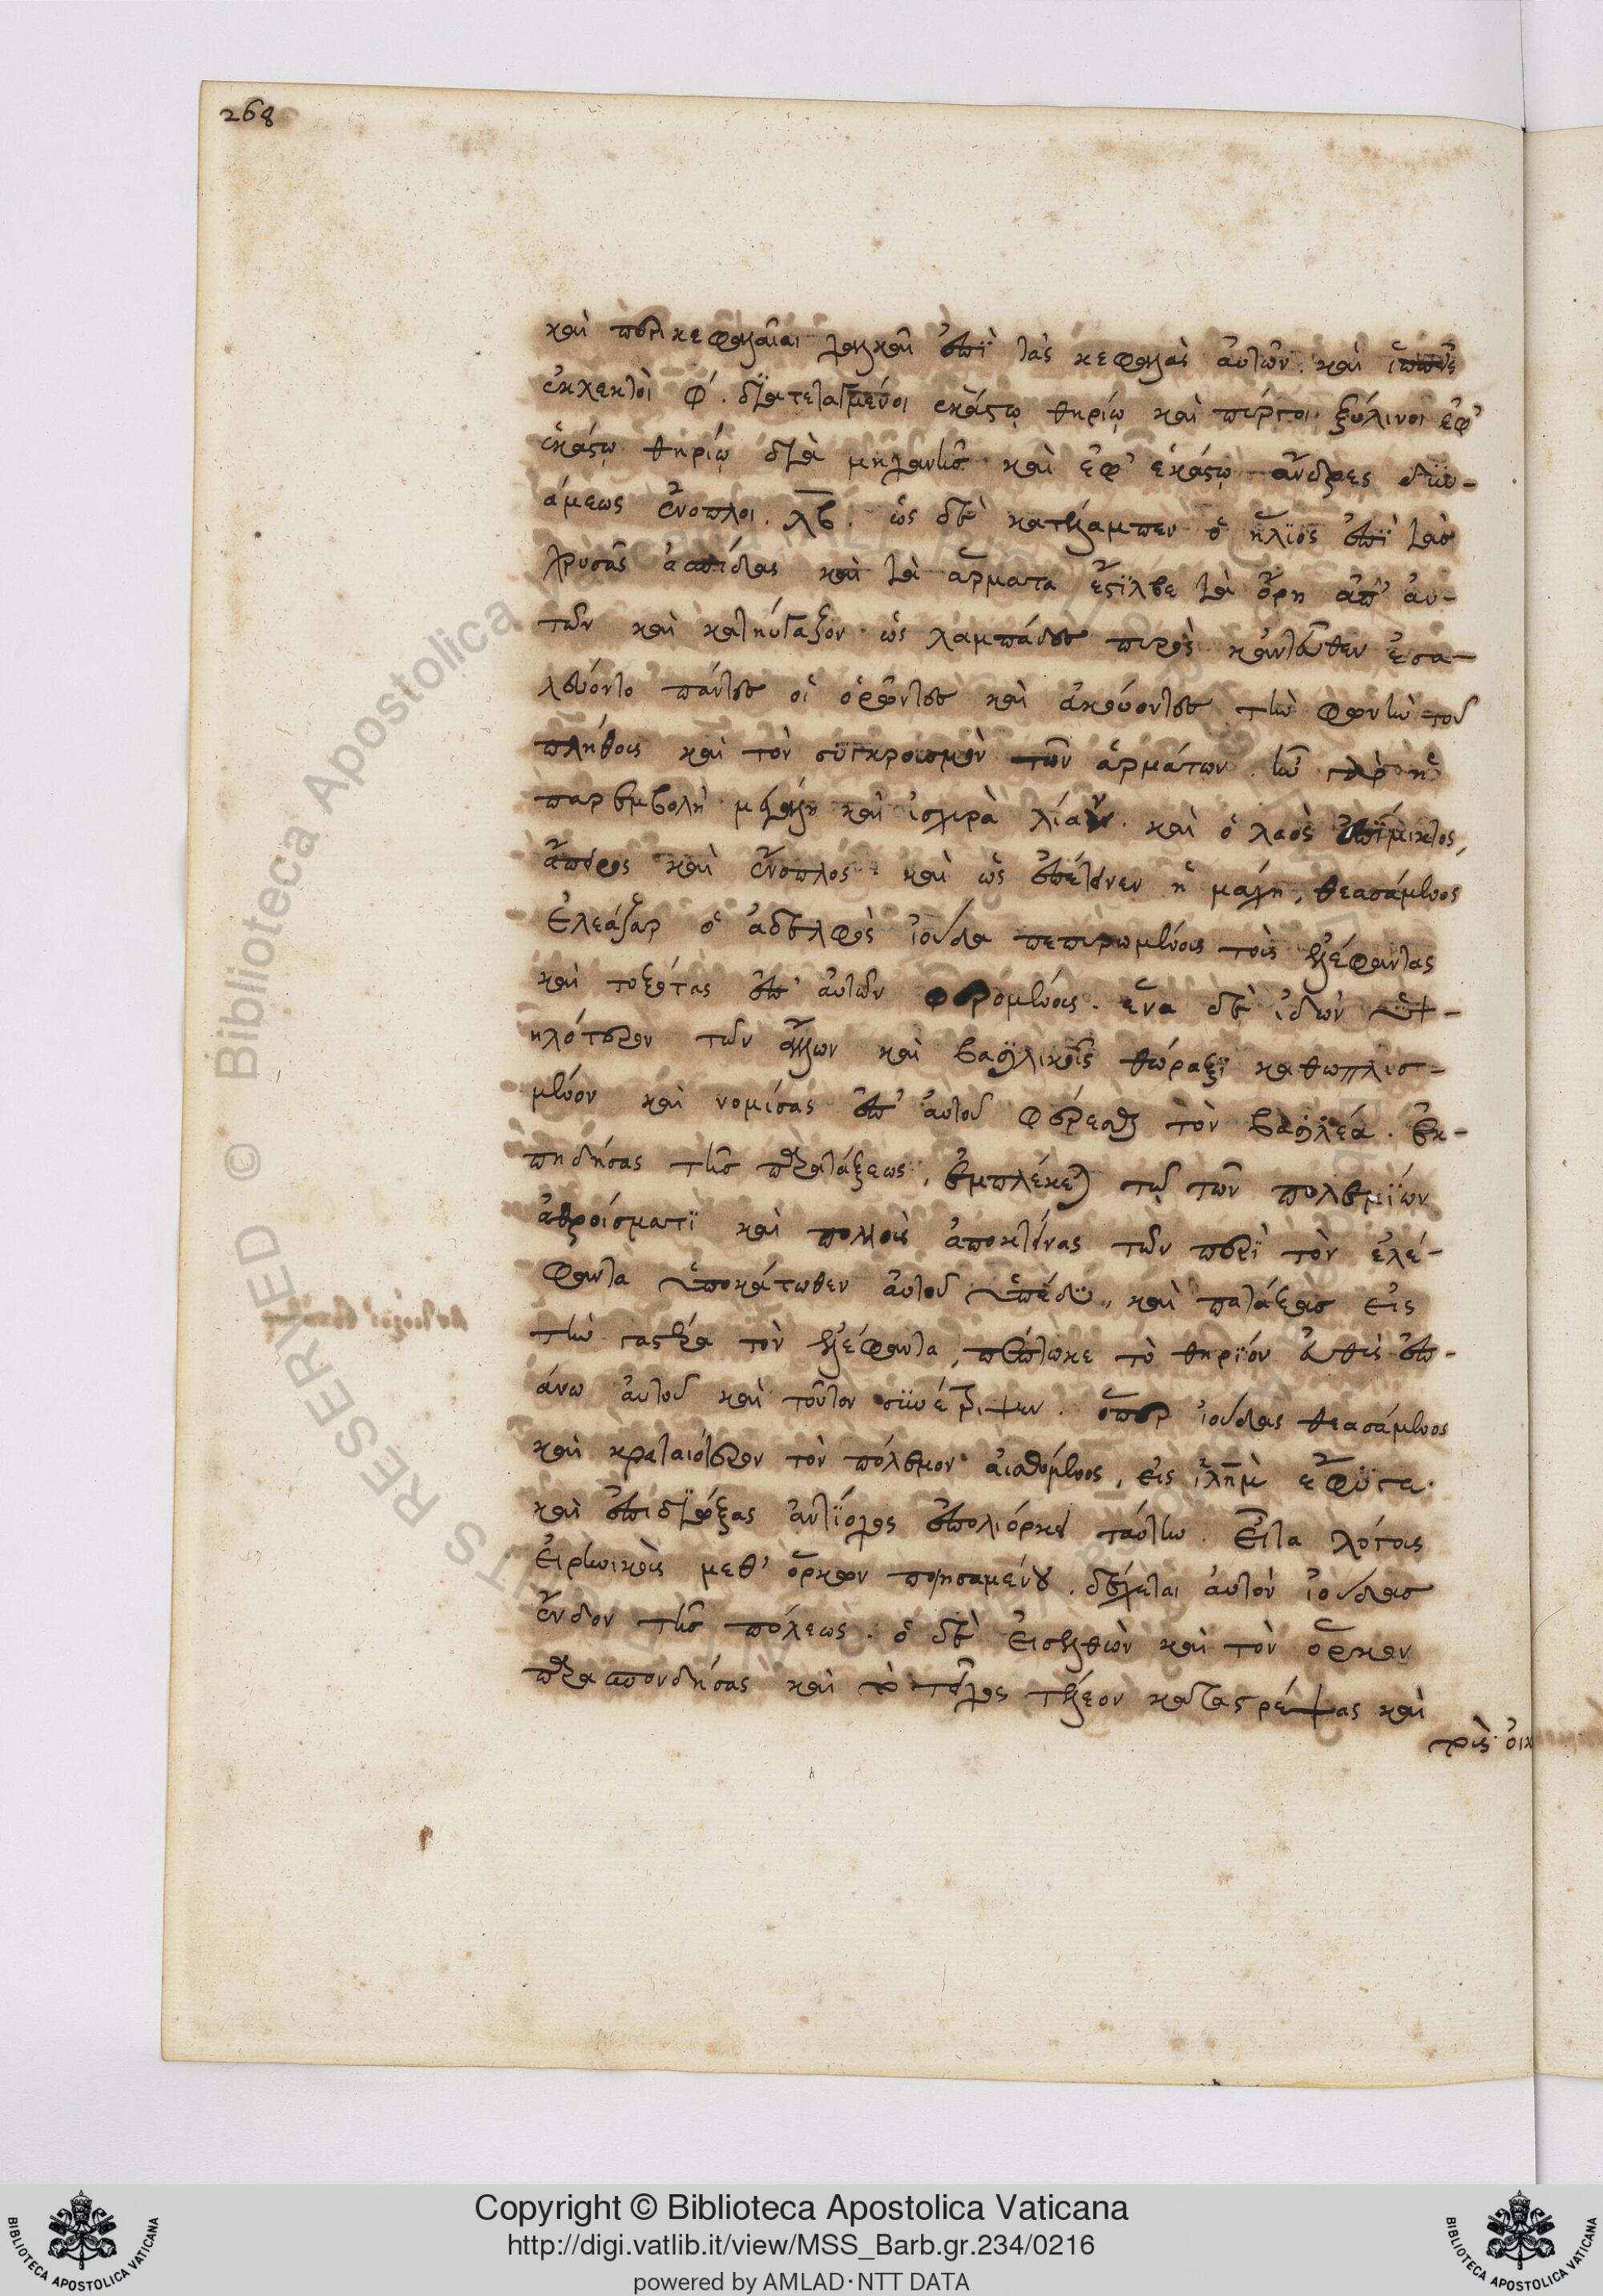 268
καὶ περικεφαλαῖαι χαλκαῖ ἐπὶ τὰς κεφαλὰς αὐτῶν. καὶ ἵππεις
ἐκλεκτοὶ φ΄. διατεταγμένοι ἑκάστῳ θηρίῳ καὶ πύργοι ξύλινοι ἐφ’
ἑκάστῳ θηρίῳ διὰ μηχανῆς καὶ ἐφ’ ἑκάστῳ ἄνδρες δυν-
άμεως ἔνοπλοι. λβ. ὡς δὲ κατέλαμπεν ὁ ἥλιος ἐπὶ τὰς
χρυσᾶς ἀσπίδας καὶ τὰ ἅρματα ἔστιλβε τὰ ὄρη ἀπ’ αὐ-
τῶν καὶ κατηύγαζον ὡς λαμπάδες πυρὸς κἀντεῦθεν ἐσα-
λεύοντο πάντες οἱ ὁρῶντες καὶ ἀκούοντες τὴν φωνὴν τοῦ
πλήθους καὶ τὸν συγκρουσμὸν τῶν ἁρμάτων. ἦν γὰρ ἡ
παρεμβολὴ μεγάλη καὶ ἰσχυρὰ λίαν. καὶ ὁ λαὸς ἐπίμικτος,
ἄπειρος καὶ ἔνοπλος καὶ ὡς ἐπέτεινεν ἡ μάχη, θεασάμενος
Ἐλεάζαρ ὁ ἀδελφὸς ἰούδα πεπυρωμένους τοὺς ἐλέφαντας
καὶ τοξότας ἐπ’ αὐτῶν φερομένους. ἕνα δὲ ἰδὼν ὑψ-
ηλότερον τῶν ἄλλων καὶ βασιλικοῖς θώραξι καθωπλισ-
μένον καὶ νομίσας ἐπ’ αὐτοῦ φέρεσθαι τὸν βασιλέα. ἐκ-
πηδήσας τῆς παρατάξεως, ἐμπλέκεται τῷ τῶν πολεμίων
ἀθροίσματι καὶ πολλοὺς ἀποκτείνας τῶν περὶ τὸν ἐλέ-
φαντα ὑποκάτωθεν αὐτοῦ ὑπέδυ, καὶ πατάξας εἰς
τὴν γαστέρα τὸν ἐλέφαντα, πέπτωκε τὸ θηρίον εὐθὺς ἐπ-
άνω αὐτοῦ καὶ τοῦτον συνέτριψεν. ὅπερ ἰούδας θεασάμενος
καὶ κραταιότερον τὸν πόλεμον αἰσθόμενος, εἰς ἱλημ ἔφυγε.
καὶ ἐπιδιώξας ἀντίοχος ἐπολιόρκει ταύτην. Εἶτα λόγοις
εἰρηνικοῖς μεθ’ ὅρκων ποιησαμένου. δέχεται αὐτὸν ἰούδας
ἔνδον τῆς πόλεως. ὁ δὲ εἰσελθὼν καὶ τὸν ὅρκον
παρασπονδήσας καὶ τὸ τεῖχος τέλεον καταστρέψας καὶ
τοὺς οἰκ
Copyright © Biblioteca Apostolica Vaticana
http://digi.vatlib.it/view/MSS_Barb.gr.234/0216
powered by AMLAD·NTT DATA
BIBLIOTECA APOSTOLICA VATICANA
BIBLIOTECA APOSTOLICA VATICANA